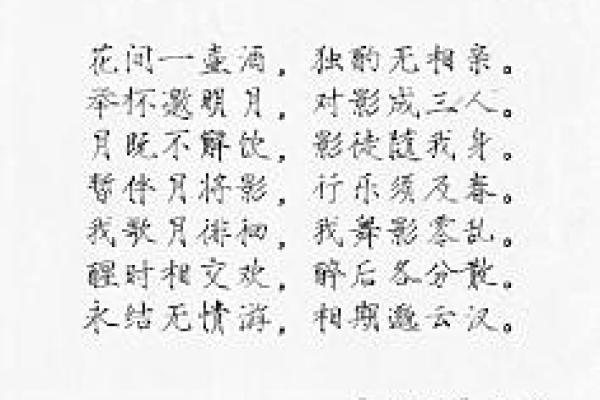 花间一壶酒，独酌无相亲。
举杯邀明月，对影成三人。
月既不解饮，影徒随我身。
暂伴月将影，行乐须及春。
我歌月徘徊，我舞影零乱。
醒时相交欢，醉后各分散。
永结无情游，相期邈云汉。